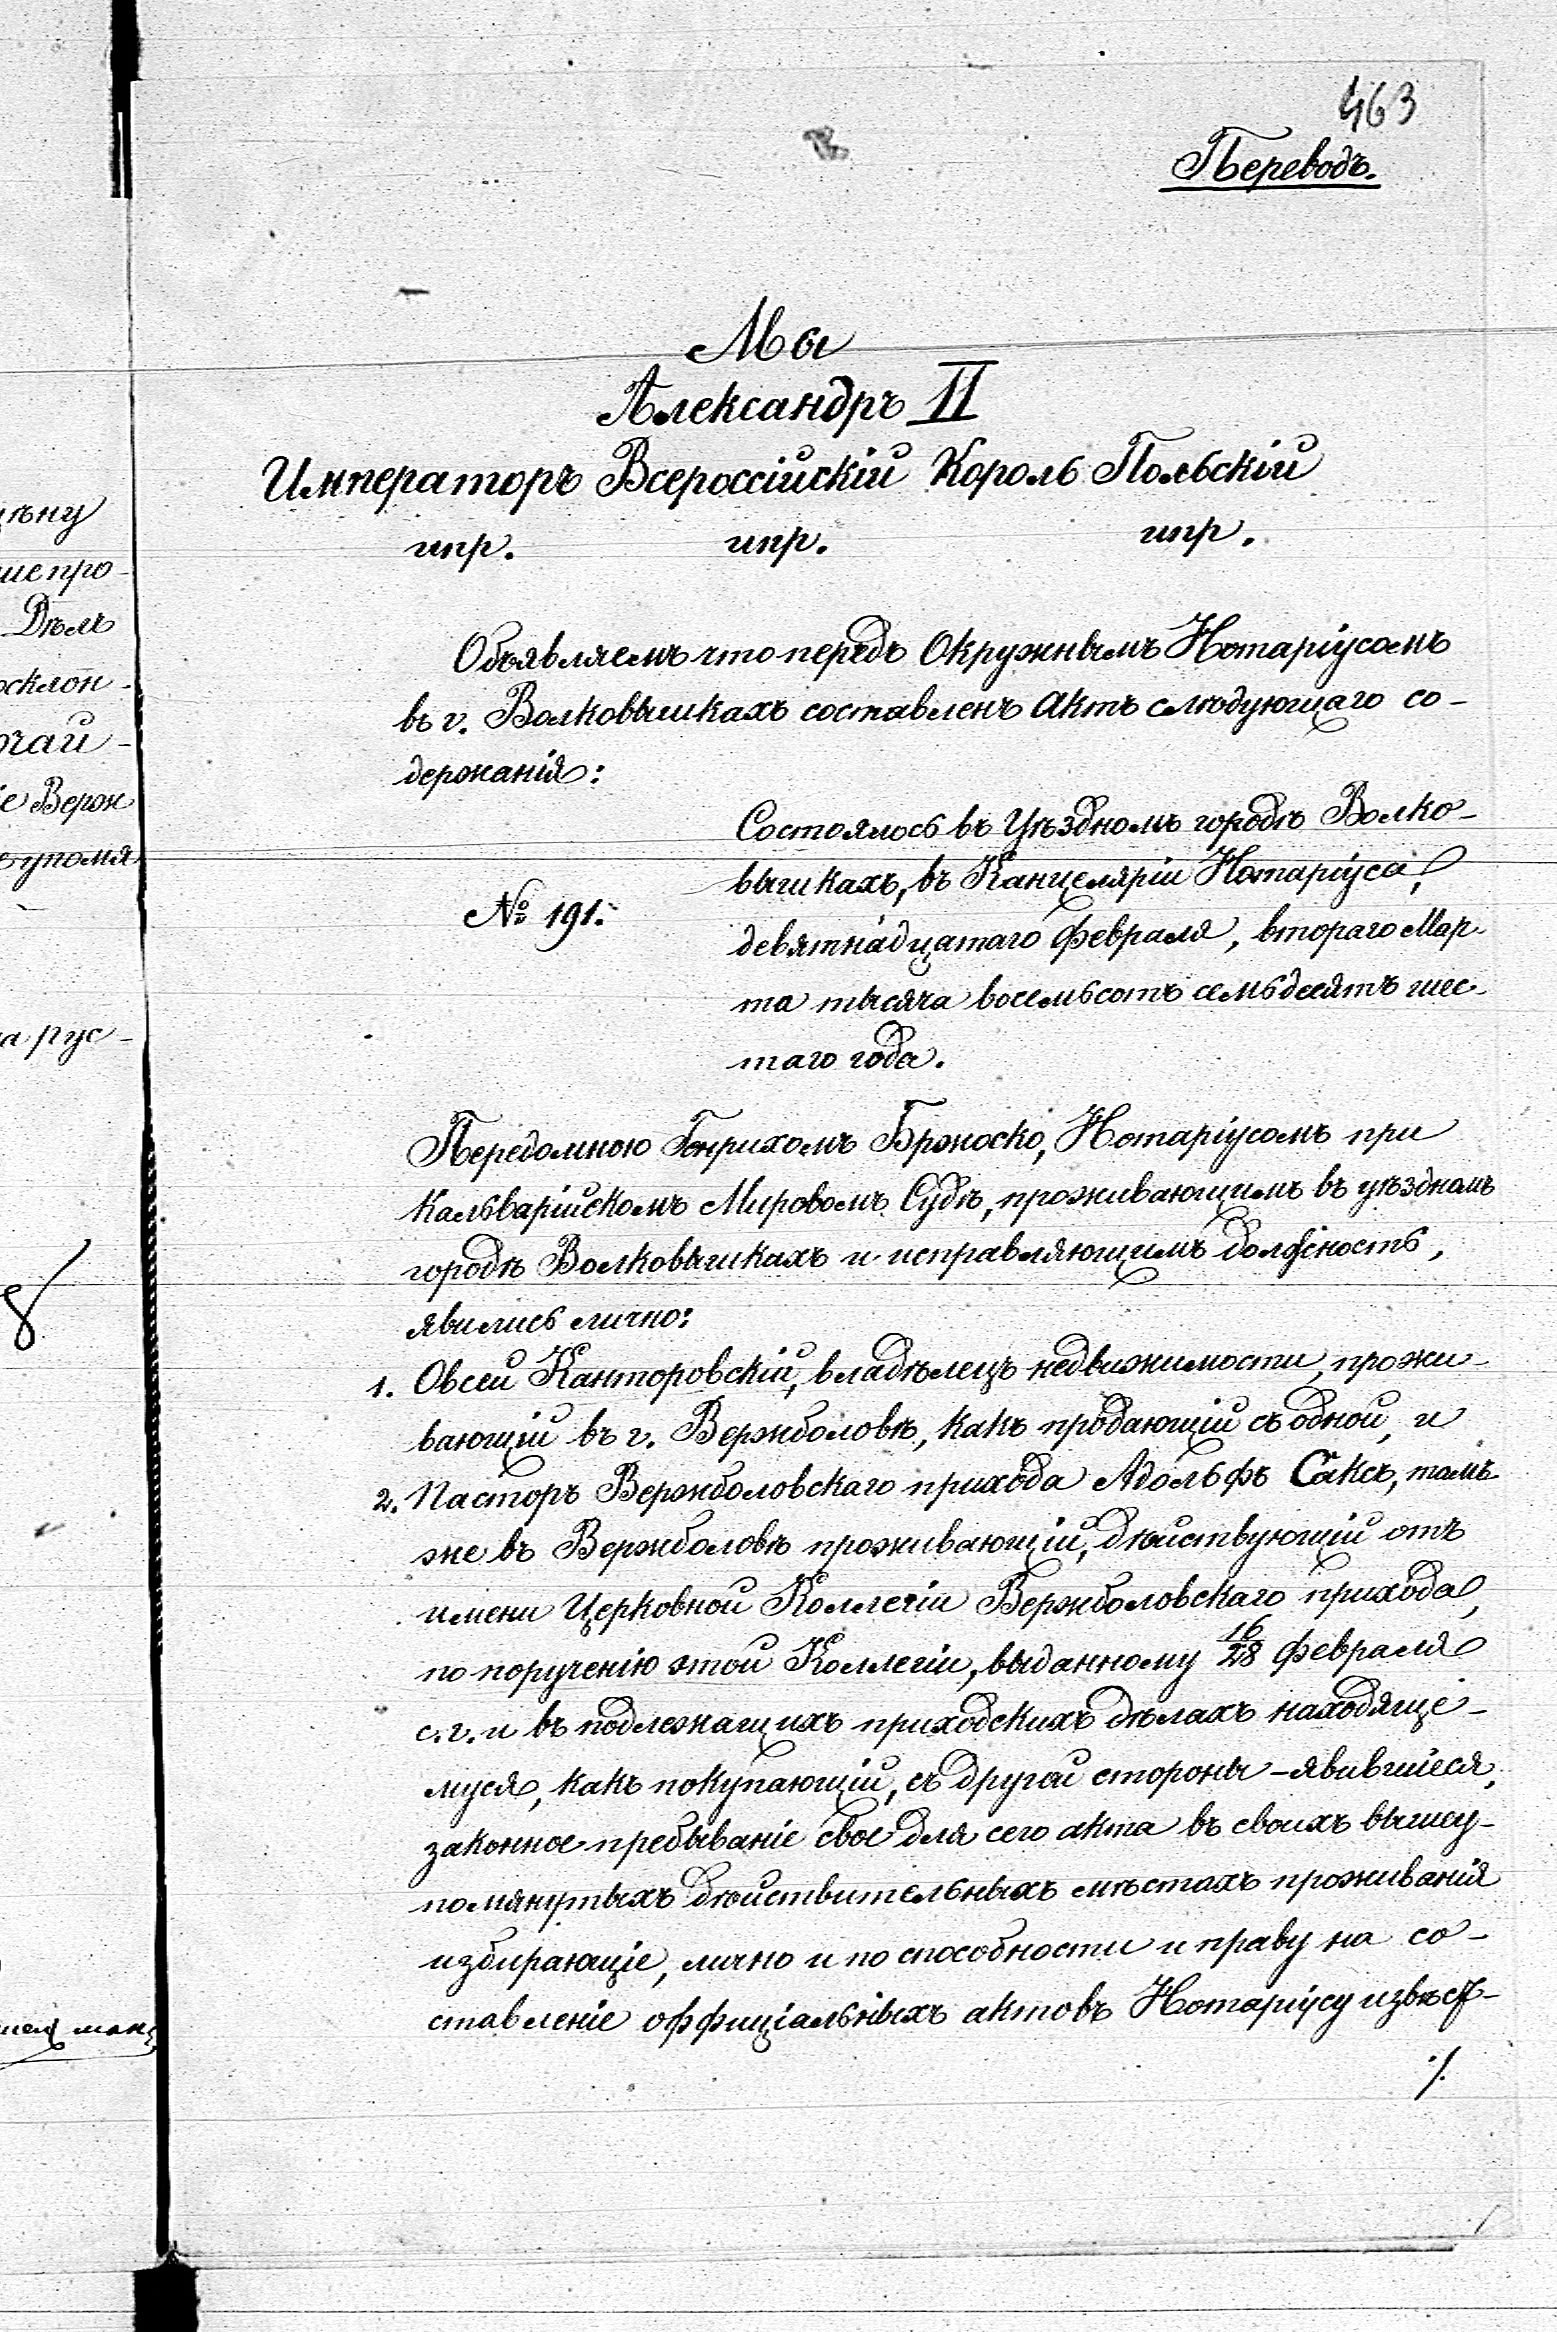 463
Переводъ.
Мы
Александръ II
Императоръ Всероссійскій Король Польскій
ипр. ипр. ипр.
Объявляемъ что передъ Окружнымъ Нотаріусомъ
въ г. Волковышкахъ составленъ Актъ слѣдующаго со-
держанія:
Состоялось въ Уѣздномъ городѣ Волко-
вышкахъ, въ Канцеляріи Нотаріуса,
№ 191.
девятнадцатаго Февраля, втораго Мар-
та тысяча восемьсотъ семьдесятъ шес-
таго года.
Передомною Генрихомъ Бржоско, Нотаріусомъ при
Кальварійскомъ Мировомъ Судѣ, проживающимъ въ уѣздномъ
городѣ Волковышкахъ и исправляющимъ должность,
явились лично:
1. Овсей Канторовскій, владѣлецъ недвижимости, прожи-
вающій въ г. Вержболовѣ, какъ продающій съ одной, и
2. Пасторъ Вержболовскаго прихода Адольфъ Саксъ, тамъ
же въ Вержболовѣ проживающій, дѣйствующій отъ
имени Церковной Коллегіи Вержболовскаго прихода,
по порученію этой Коллегіи, выданному 16/28 Февраля
с. г. и въ подлежащихъ приходскихъ дѣлахъ находяще-
муся, какъ покупающій, съ другой стороны - явившіеся,
законное пребываніе свое для сего акта въ своихъ вышеу-
помянутыхъ дѣйствительныхъ мѣстахъ проживанія
избирающіе, лично и по способности и праву на со-
ставленіе оффиціальныхъ актовъ Нотаріусу извѣст-
./.
цѣну
Дѣлъ
осклон-
е Верж
упомя
а рус-
8